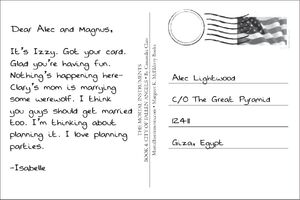 Dear Alec and Magnus,
It's Izzy. Got your card.
Glad you're having fun.
Nothing's happening here-
Clary's mom is marrying
some werewolf. I think
you guys should get married
too. I'm thinking about
planning it. I love planning
parties.
-Isabelle
THE MORTAL INSTRUMENTS
BOOK 4: CITY OF FALLEN ANGELS • By Cassandra Clare
Alec Lightwood
C/O The Great Pyramid
12411
Giza, Egypt